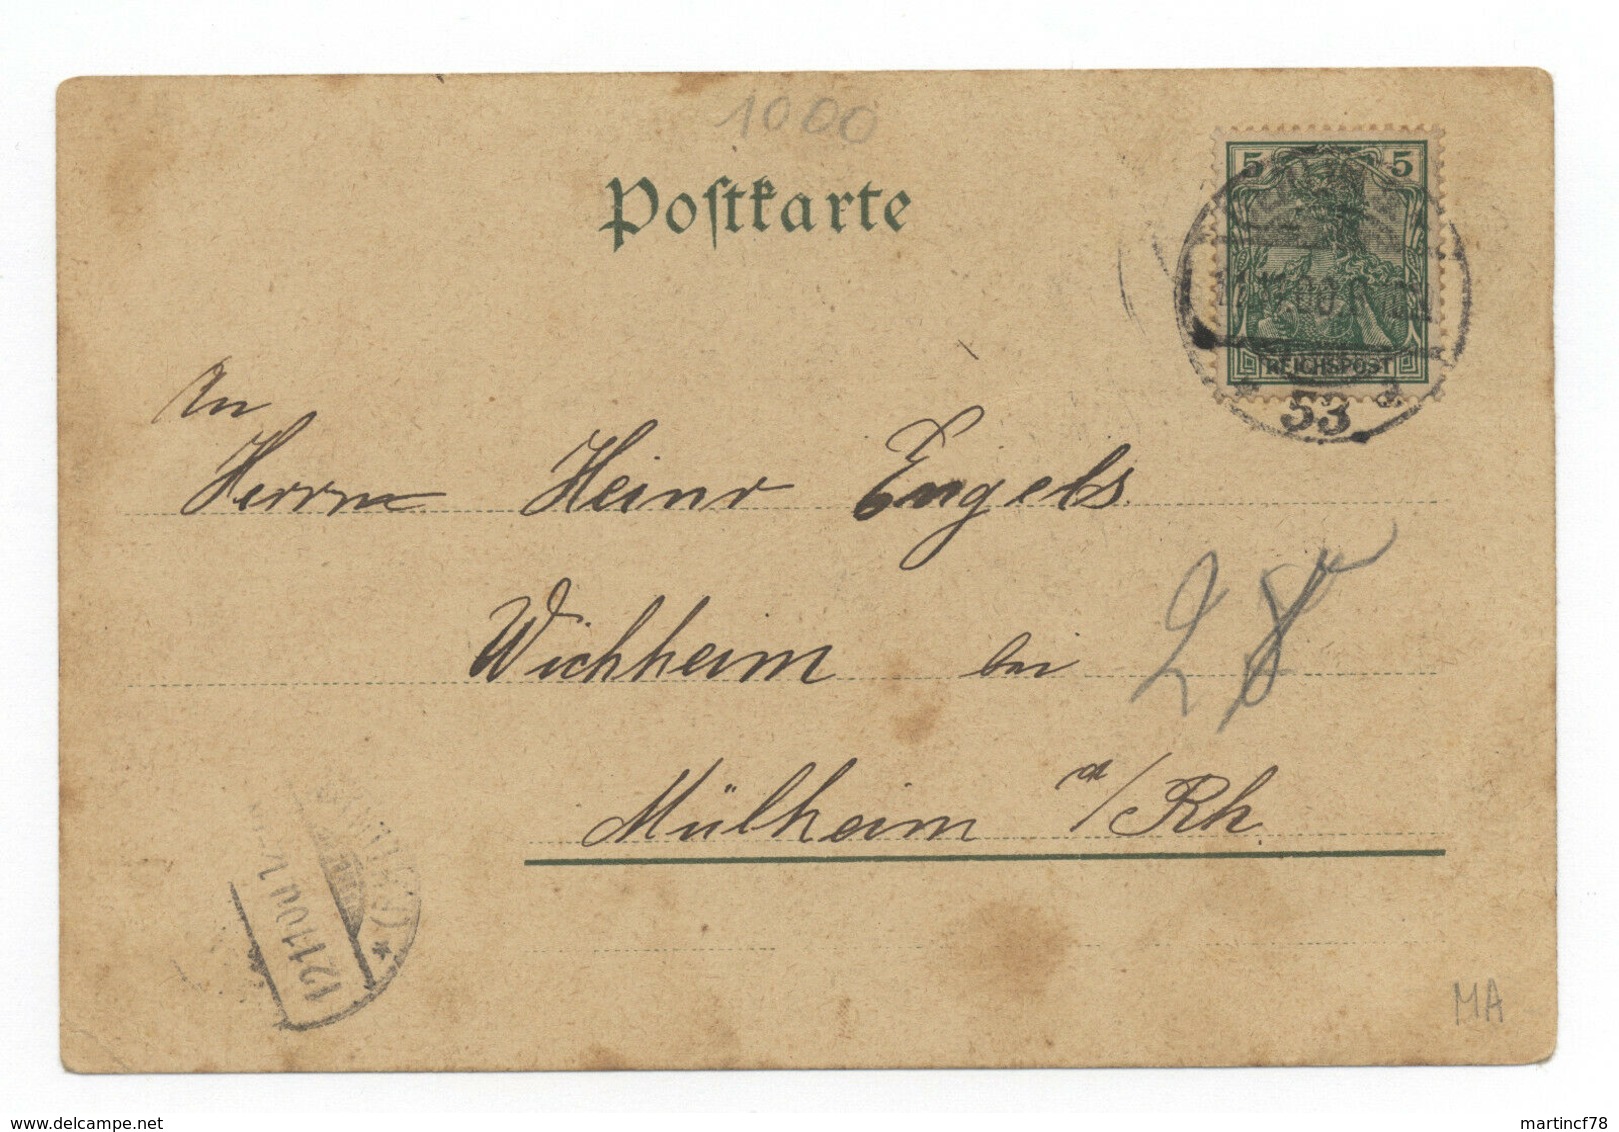 1000
Postkarte
5 5
REICHSPOST
53
An
Herrn Heinr Engels
Wichheim bei
28
Mülheim a/Rh.
MA
delcampe.net
martincf78